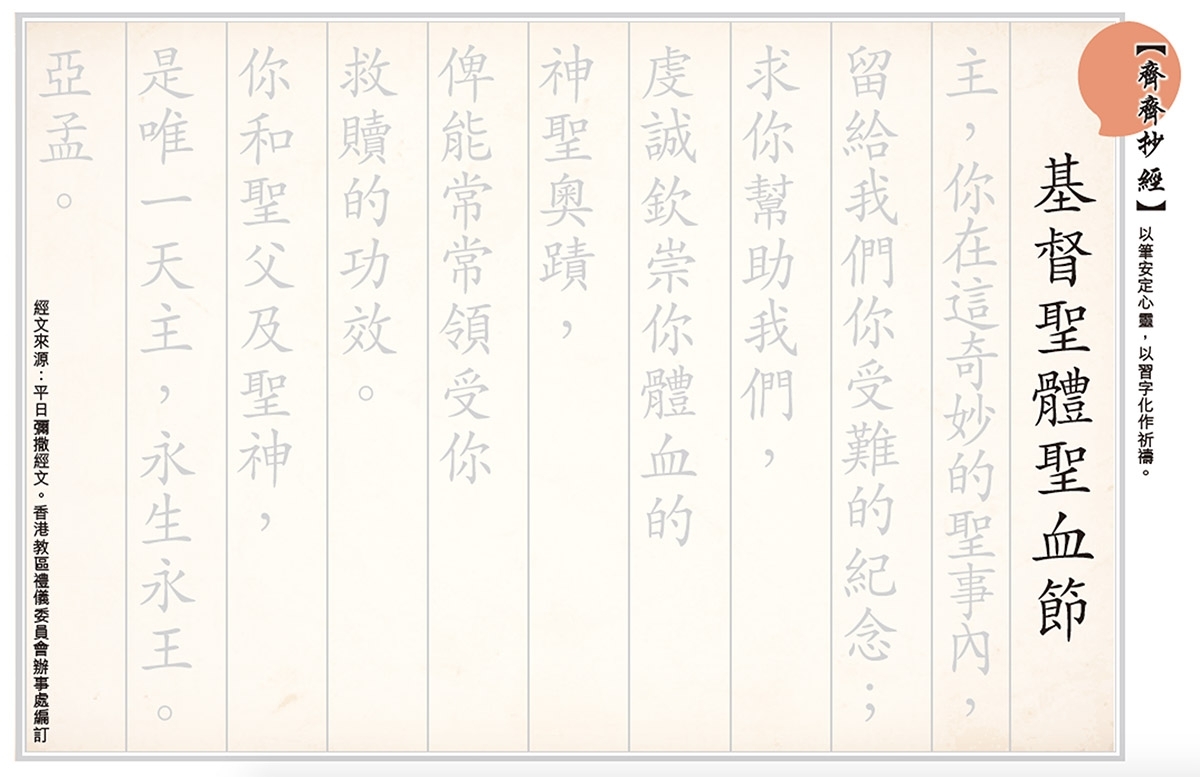 【齊齊抄經】以筆安定心靈，以習字化作祈禱。
基督聖體聖血節
主，你在這奇妙的聖事內，
留給我們你受難的紀念；
求你幫助我們，
虔誠欽崇你體血的
神聖奧蹟，
俾能常常領受你
救贖的功效。
你和聖父及聖神，
是唯一天主，永生永王。
亞孟。
經文來源：平日彌撒經文。香港教區禮儀委員會辦事處編訂